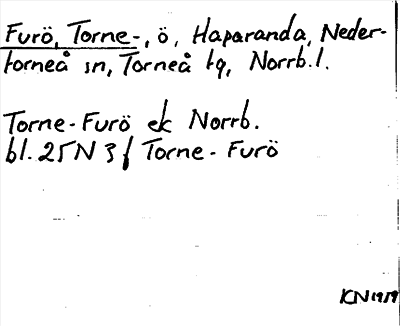 Furö, Torne-, ö, Haparanda, Neder-
torneå sn, Torneå tg, Norrb. l.
Torne-Furö ek Norrb.
bl. 25N 3 f Torne-Furö
KN 1959